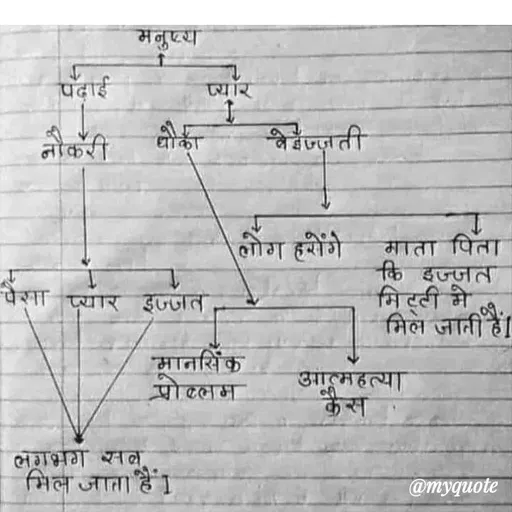 मनुष्य
पढ़ाई प्यार
नौकरी धौका बेइज्जती
लोग हसेंगे माता पिता
कि इज्जत
मिट्टी मे
मिल जाती हैं।
पैसा प्यार इज्जत
मानसिंक
प्रोब्लम
आत्महत्या
कैस
लगभग सब
मिल जाता हैं।
@myquote